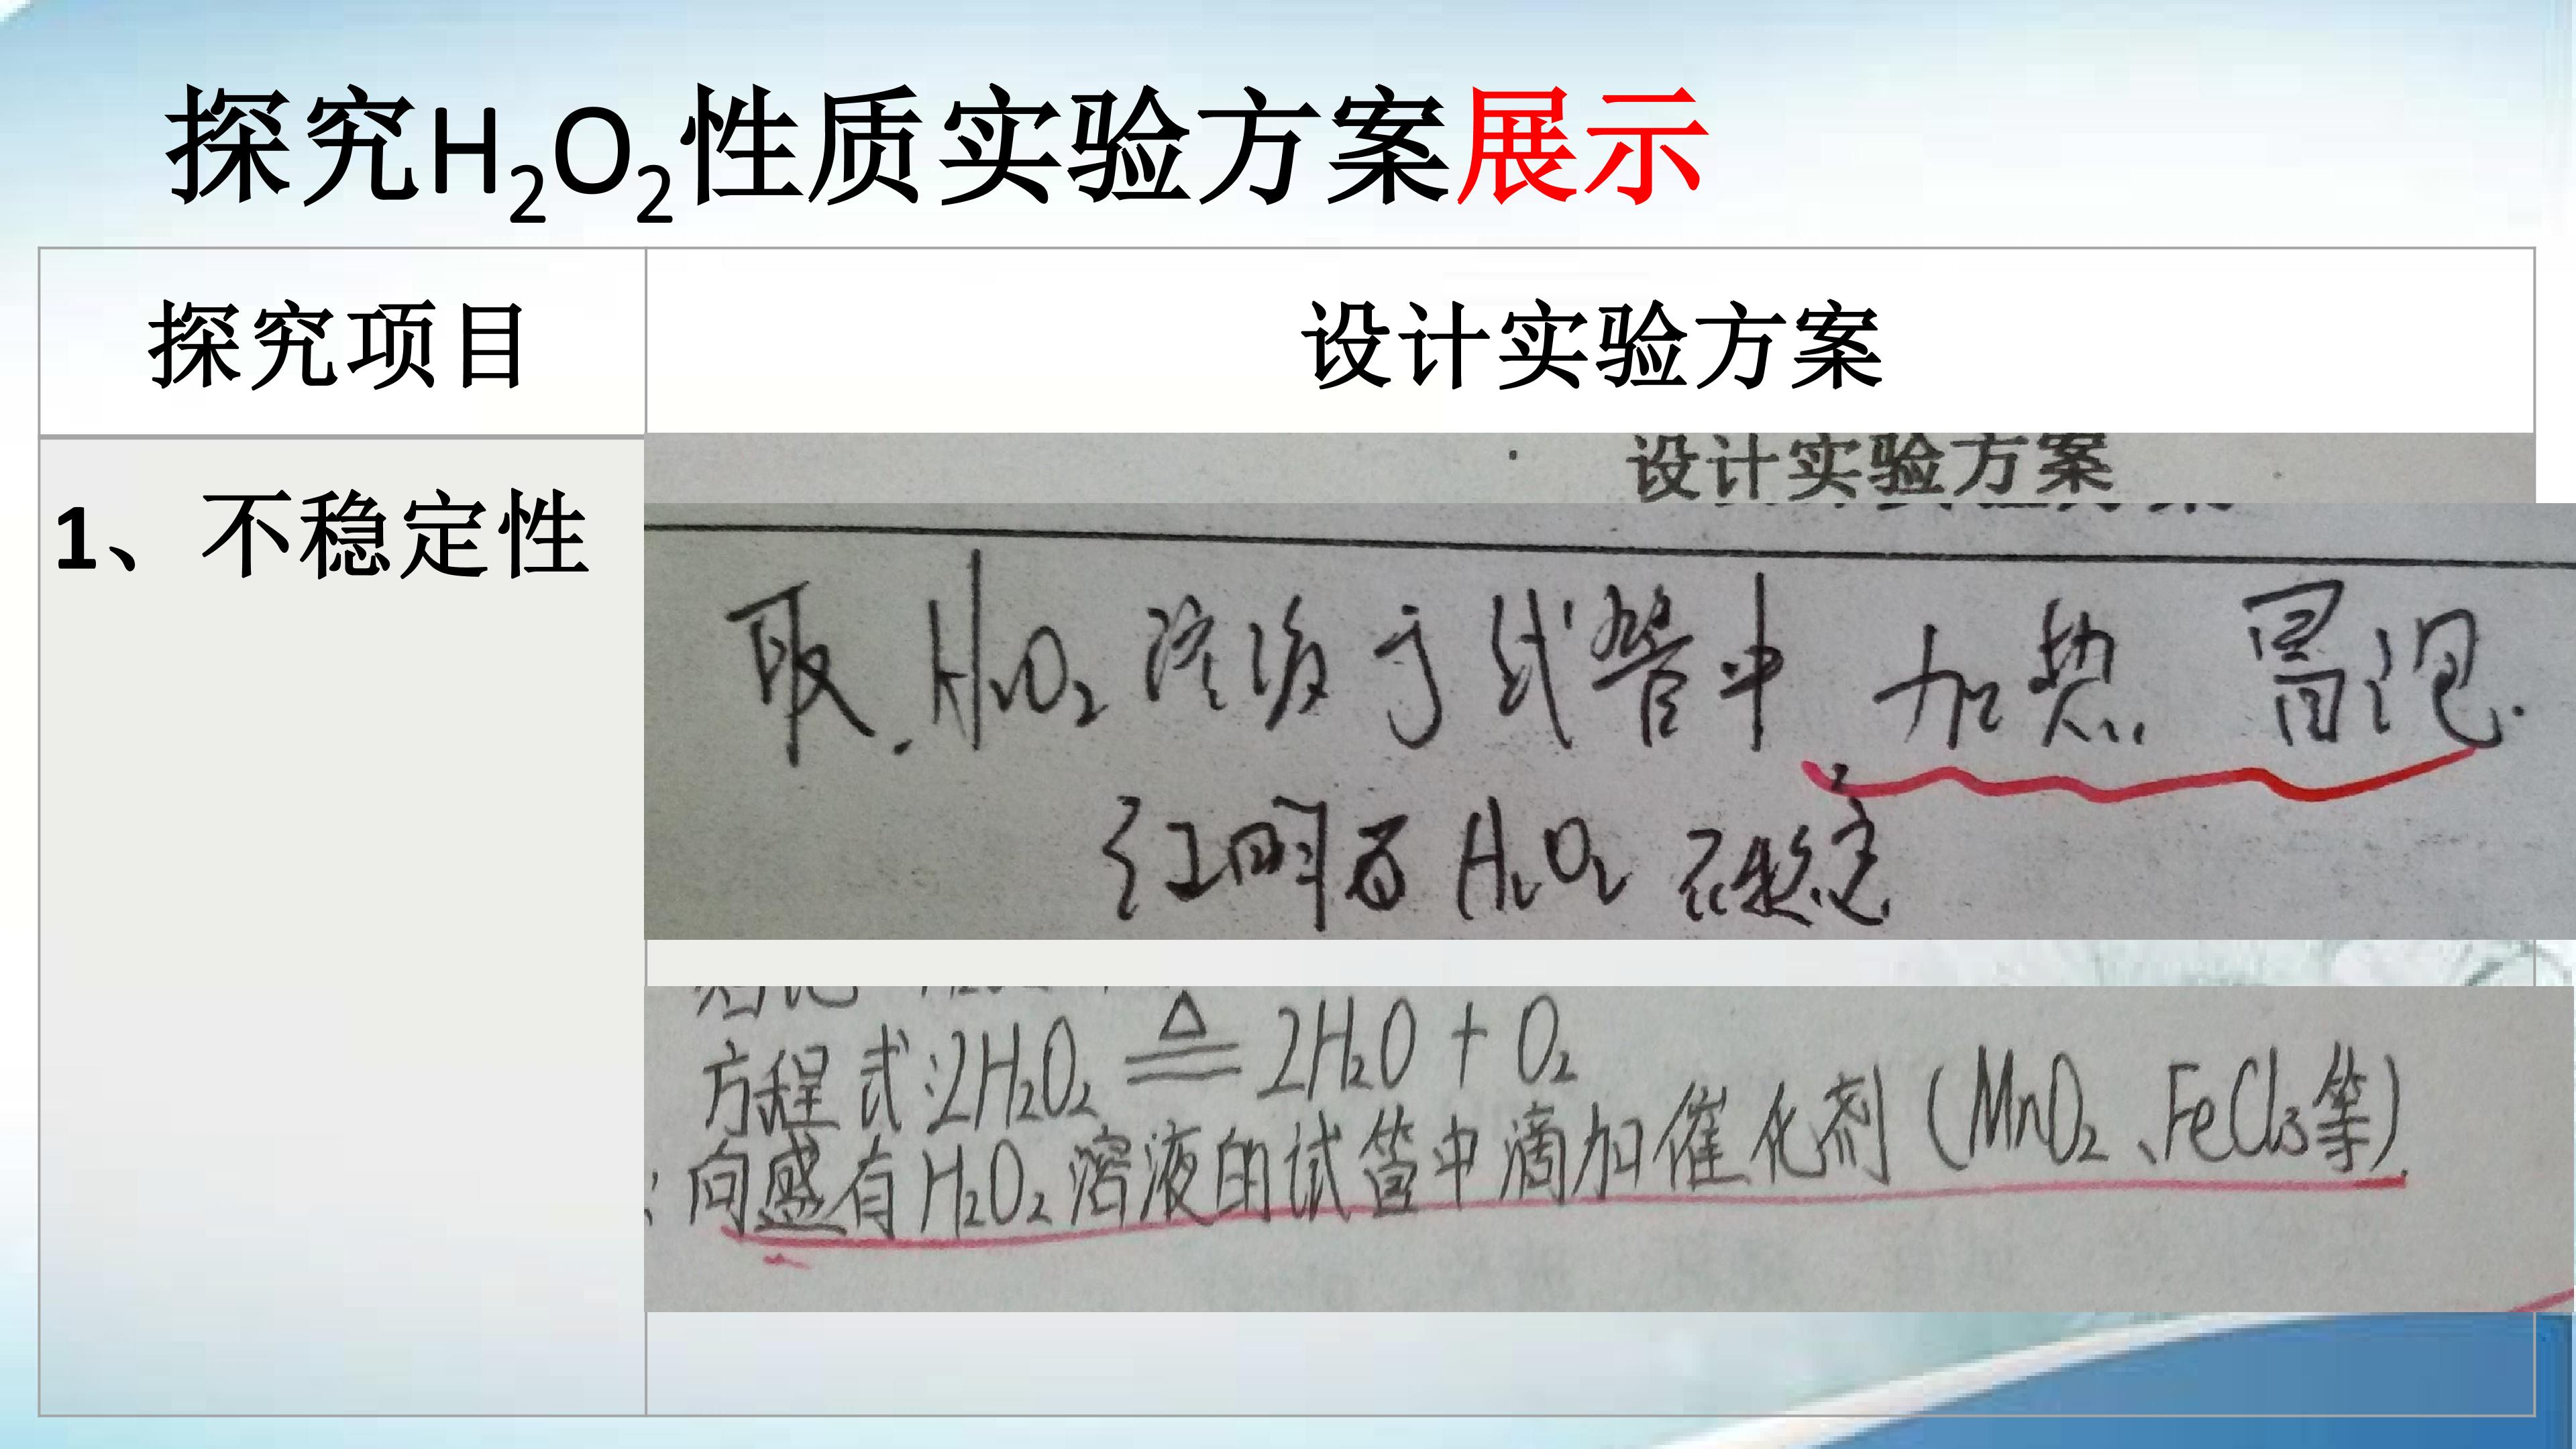 探究H₂O₂性质实验方案展示
探究项目
设计实验方案
1、不稳定性
设计实验方案
取 H₂O₂ 溶液于试管中 加热 冒泡.
证明 H₂O₂ 不稳定
方程式:2H₂O₂ ≜ 2H₂O + O₂
:向盛有H₂O₂溶液的试管中滴加催化剂(MnO₂、FeCl₃等).